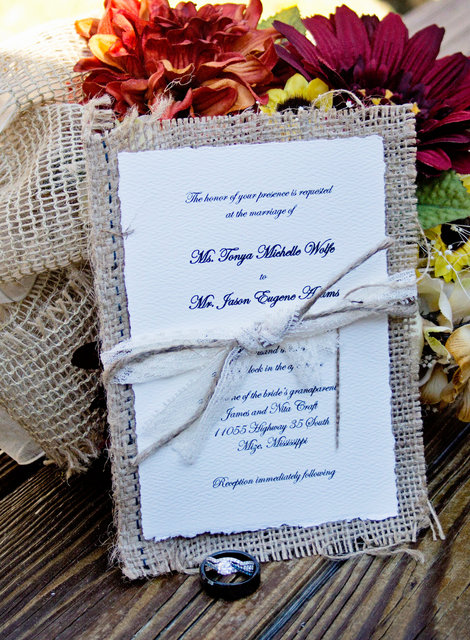 The honor of your presence is requested
at the marriage of
Ms. Tonya Michelle Wolfe
to
Mr. Jason Eugene Adams
and
lock in the
of the bride's grandparents
James and Nita Craft
11055 Highway 35 South
Mize, Mississippi
Reception immediately following